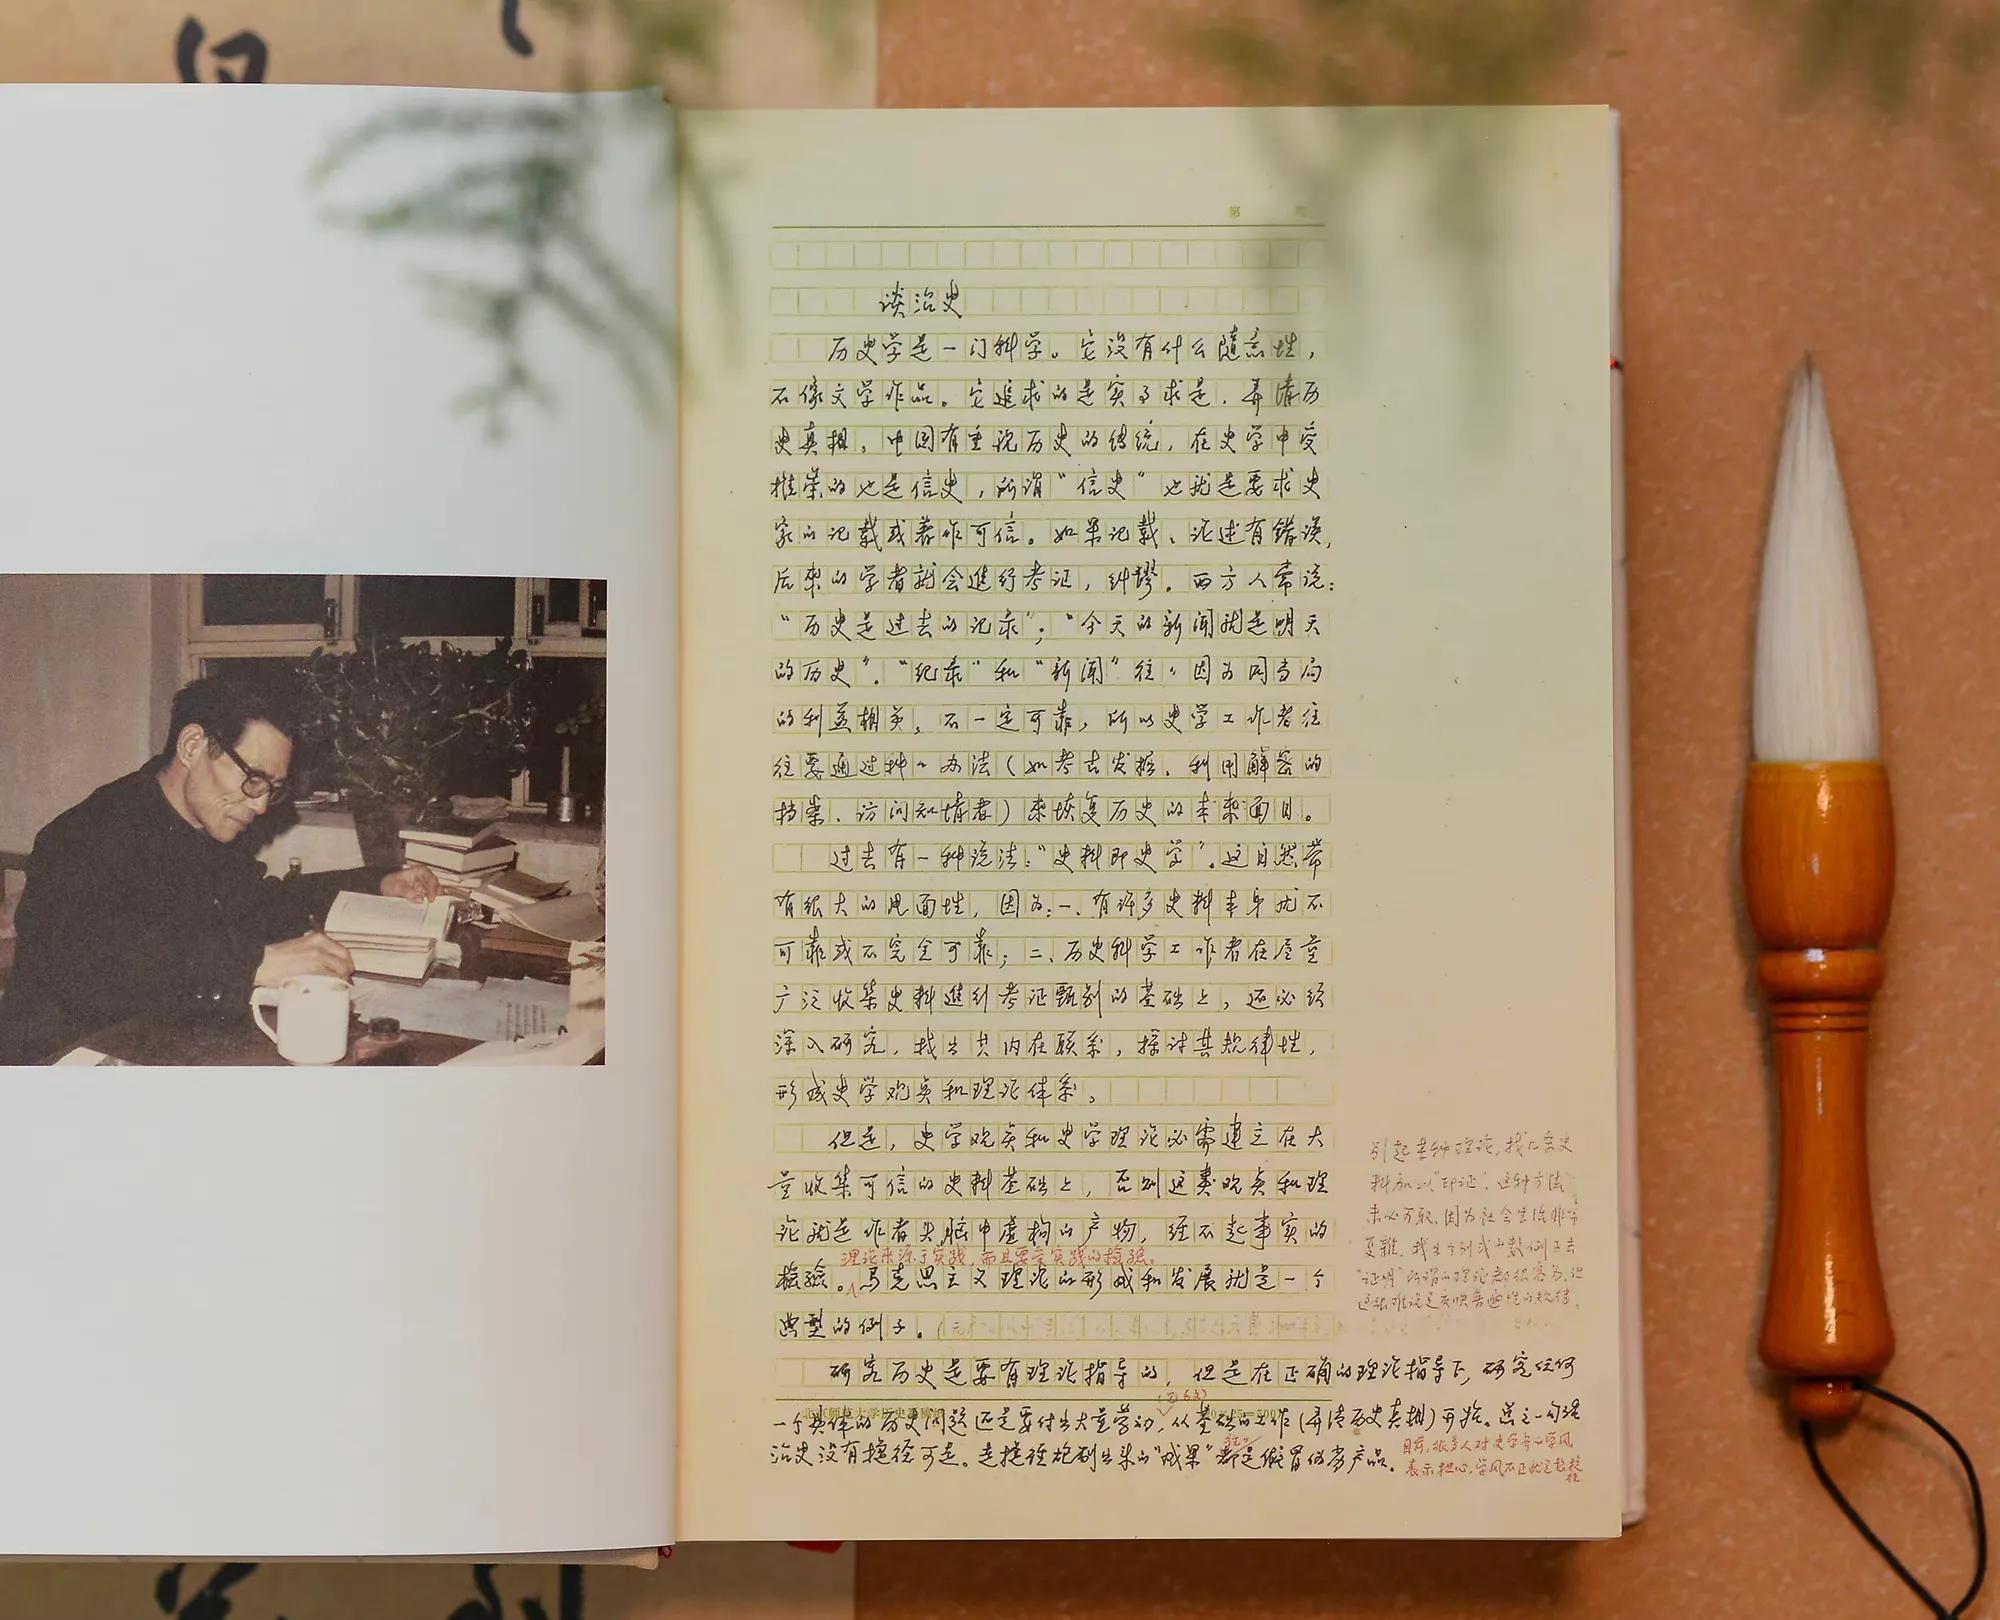 第 页
谈治史
历史学是一门科学。它没有什么随意性，
不像文学作品。它追求的是实事求是，弄清历
史真相。中国有重视历史的传统，在史学中受
推崇的也是信史，所谓“信史”也就是要求史
家的记载或著作可信。如果记载、论述有错误，
后来的学者就会进行考证，纠谬。西方人常说：
“历史是过去的记录”；“今天的新闻就是明天
的历史”。“纪录”和“新闻”往往因为同当局
的利益相关，不一定可靠，所以史学工作者往
往要通过种种办法（如考古发掘、利用解密的
档案、访问知情者）来恢复历史的本来面目。
过去有一种说法：“史料即史学”。这自然带
有很大的片面性，因为：一、有许多史料本身就不
可靠或不完全可靠；二、历史科学工作者在尽量
广泛收集史料进行考证甄别的基础上，还必须
深入研究，找出其内在联系，探讨其规律性，
形成史学观点和理论体系。
但是，史学观点和史学理论必需建立在大
量收集可信的史料基础上，否则这类观点和理
论就是作者头脑中虚构的产物，经不起事实的
理论来源于实践，而且要受实践的检验。
检验。马克思主义理论的形成和发展就是一个
典型的例子。
研究历史是要有理论指导的，但是在正确的理论指导下，研究任何
一个具体的历史问题还是要付出大量劳动，从基础的工作（弄清历史真相）开始。总之一句话
治史没有捷径可走。走捷径炮制出来的“成果”都是假冒伪劣产品。
引起某种理论，找几条史
料加以“印证”，这种方法
未必可取，因为社会生活非常
复杂，找出个别或少数例子去
“证明”所谓的理论都很容易，但
这很难说是反映普遍性的规律。
目前，很多人对史学界的学风
表示担心，学风不正就是